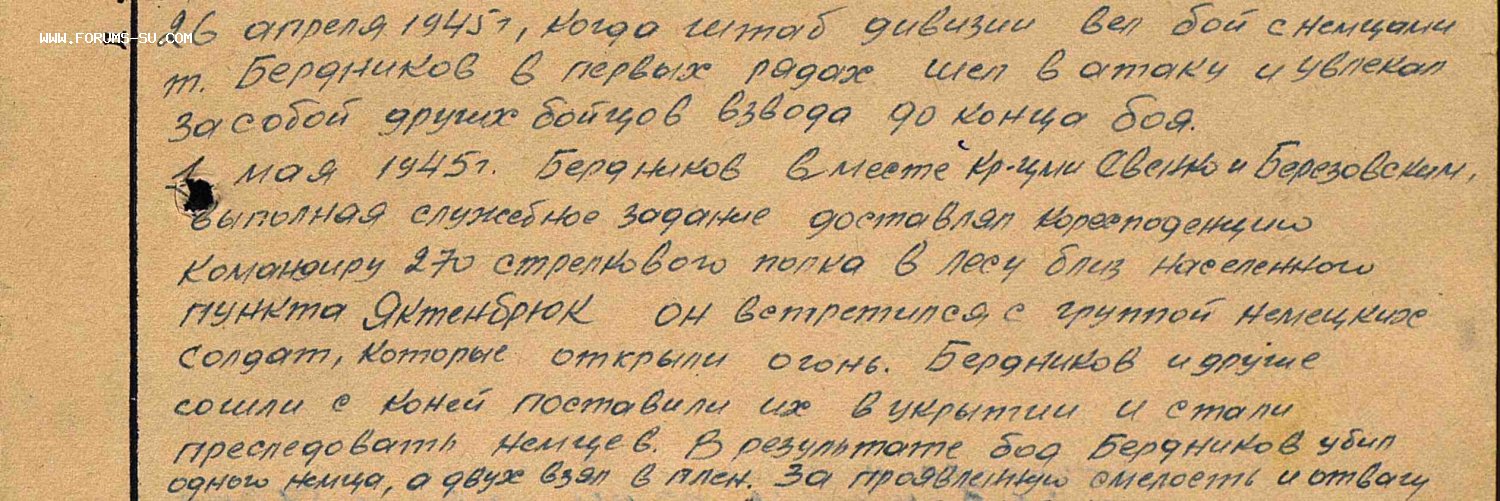 WWW.FORUMS-SU.COM
26 апреля 1945г, когда штаб дивизии вел бой с немцами
т. Бердников в первых рядах шел в атаку и увлекал
за собой других бойцов взвода до конца боя.
1 мая 1945г. Бердников вместе кр-цми и Березовским,
выполная служебное задание доставлял коресподенцию
командиру 270 стрелкового полка в лесу близ населенного
пункта Яктенбрюк он встретился с группой немецких
солдат, которые открыли огонь. Бердников и другие
сошли с коней поставили их в укрытии и стали
преследовать немцев. В результате боя Бердников убил
одного немца, а двух взял в плен. За проявленную смелость и отвагу